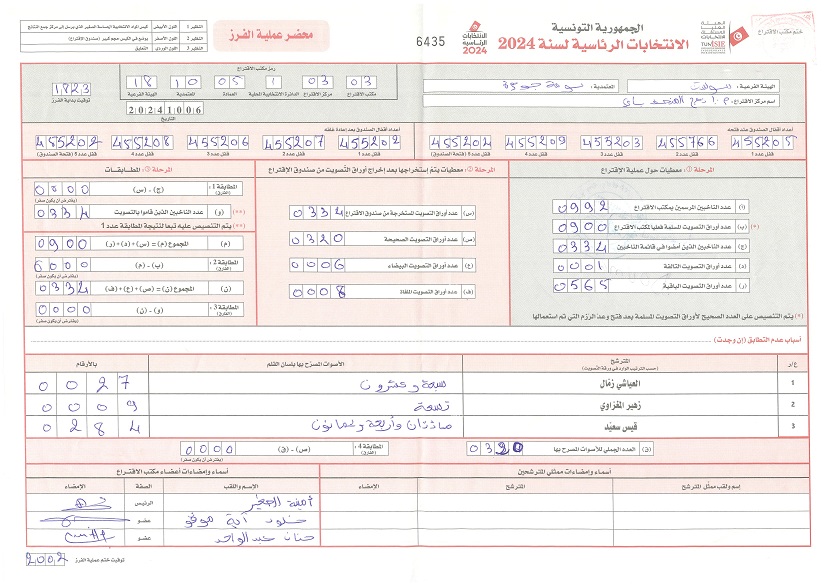 ختم مكتب الاقتراع
الجمهورية التونسية
الانتخابات الرئاسية لسنة 2024
الانتخابات الرئاسية 2024
6435
محضر عملية الفرز
النظير 1 اللون الأبيض
النظير 2 اللون الأصفر يوضع في الكيس حجم كبير (صندوق الاقتراع)
النظير 3 اللون الوردي التعليق
الهيئة الفرعية:
المعتمدية: سوسة جوهرة
اسم مركز الاقتراع:
رمز مكتب الاقتراع
03 03 1 05 10 18
مكتب الاقتراع مركز الاقتراع الدائرة الانتخابية المحلية العمادة المعتمدية الهيئة الفرعية
20241006
التاريخ
1823
توقيت بداية الفرز
أعداد أقفال الصندوق عند فتحه
455205 455766 455203 455209 455204
قفل عدد 1 قفل عدد 2 قفل عدد 3 قفل عدد 4 قفل عدد 5 (فتحة الصندوق)
أعداد أقفال الصندوق بعد إعادة غلقه
455202 455207 455206 455208 455202
قفل عدد 1 قفل عدد 2 قفل عدد 3 قفل عدد 4 قفل عدد 5 (فتحة الصندوق)
المرحلة ①: معطيات حول عملية الاقتراع
(أ) عدد الناخبين المرسمين بمكتب الاقتراع 0992
(*) (ب) عدد أوراق التصويت المسلمة فعليا لمكتب الاقتراع 0900
(ج) عدد الناخبين الذين أمضوا في قائمة الناخبين 0334
(د) عدد أوراق التصويت التالفة 0001
(ر) عدد أوراق التصويت الباقية 0565
(*) يتم التنصيص على العدد الصحيح لأوراق التصويت المسلمة بعد فتح وعد الرزم التي تم استعمالها
المرحلة ②: معطيات يتم إستخراجها بعد إخراج أوراق التصويت من صندوق الاقتراع
(س) عدد أوراق التصويت المستخرجة من صندوق الاقتراع 0334
(ص) عدد أوراق التصويت الصحيحة 0320
(ع) عدد أوراق التصويت البيضاء 0006
(ف) عدد أوراق التصويت الملغاة 0008
المرحلة ③: المطابقات
المطابقة 1: (الفارق) (ج) - (س) 0000
(يفترض أن يكون صفر)
(**) (و) عدد الناخبين الذين قاموا بالتصويت 0334
(**) يتم التنصيص عليه تبعا لنتيجة المطابقة عدد 1
(م) المجموع (م) = (س) + (د) + (ر) 0900
المطابقة 2: (الفارق) (ب) - (م) 0000
(يفترض أن يكون صفر)
(ن) المجموع (ن) = (ص) + (ع) + (ف) 0334
المطابقة 3: (الفارق) (و) - (ن) 0000
(يفترض أن يكون صفر)
أسباب عدم التطابق (إن وجدت)
ع/د المترشح الأصوات المصرح بها بلسان القلم بالأرقام
(حسب الترتيب الوارد في ورقة التصويت)
1 العياشي زمّال سبعة وعشرون 0027
2 زهير المغزاوي تسعة 0009
3 قيس سعيّد مائتان وأربعة وثمانون 0284
(ق) العدد الجملي للأصوات المصرح بها 0320
المطابقة 4: (الفارق) (ص) - (ق) 0000
(يفترض أن يكون صفر)
أسماء وإمضاءات ممثلي المترشحين
إسم ولقب ممثل المترشح المترشح الإمضاء
أسماء وإمضاءات أعضاء مكتب الاقتراع
الإسم واللقب الصفة الإمضاء
أمينة الرئيس
خلود عضو
حنان عبد الواحد عضو
توقيت ختم عملية الفرز 2002